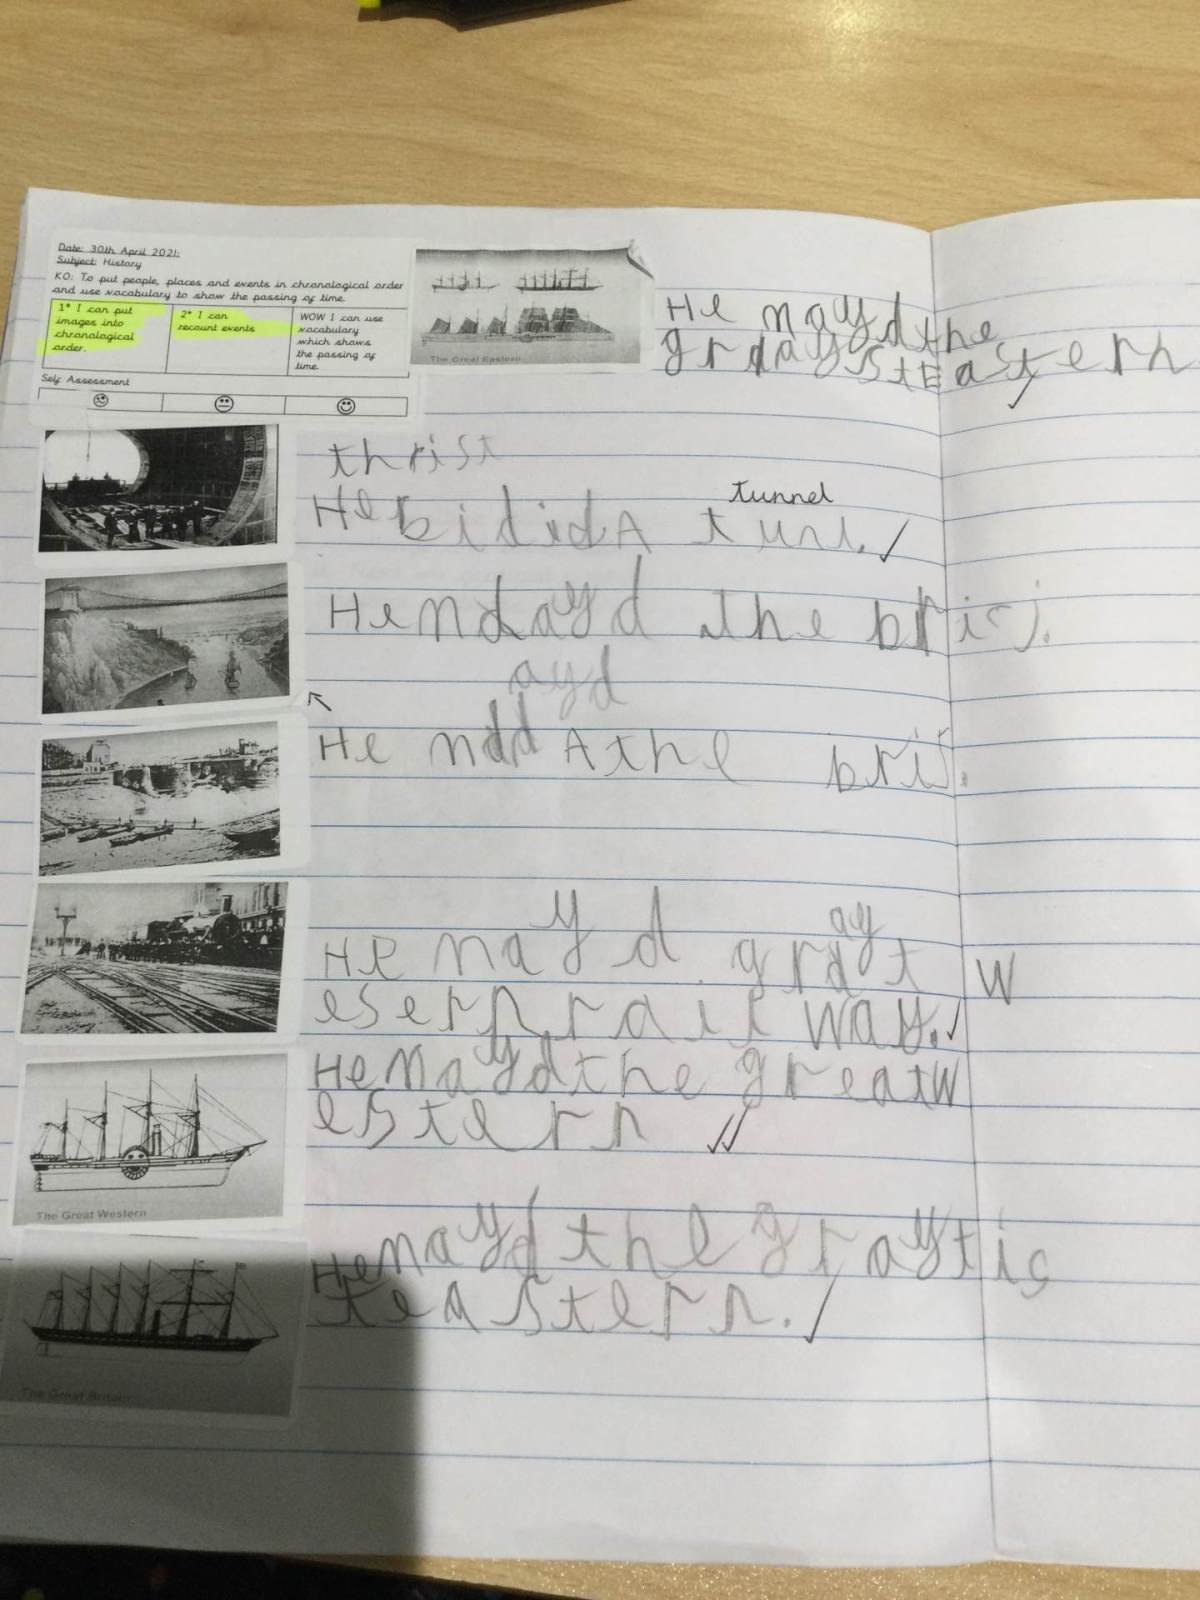 Date: 30th April 2021:
Subject: History
KO: To put people, places and events in chronological order
and use vocabulary to show the passing of time.
1* I can put
images into
chronological
order.
2* I can
recount events
WOW I can use
vocabulary
which shows
the passing of
time.
Self Assessment
The Great Eastern
He nayd the
grdayst Eastern
thrist
tunnel
He bididA turl.
He ndayd the bricj.
ayd
He ndd A the bris.
ay
He nayd grayt W
esern rail way.
He nayd the great W
estern
The Great Western
He nayd the graytis
teastern.
The Great Britain